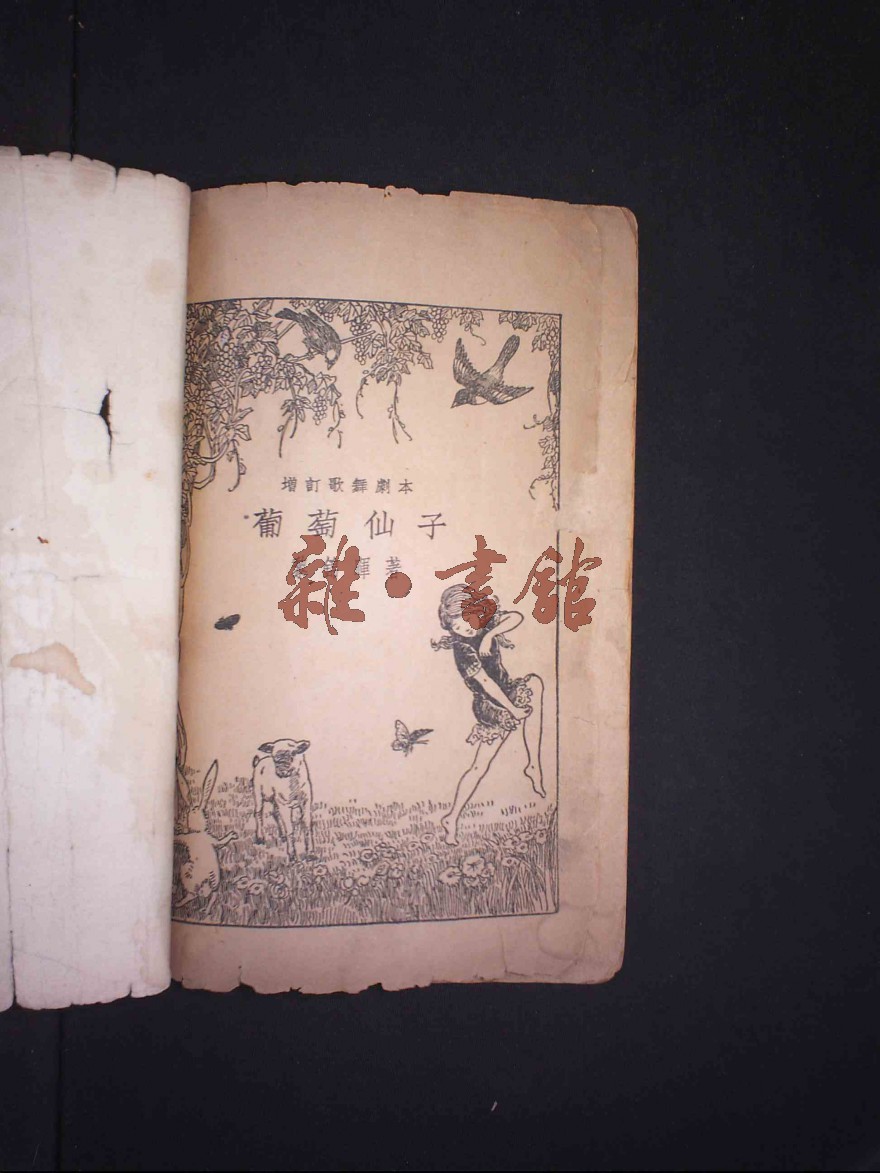 增訂歌舞劇本
葡萄仙子
輝著
雜·書館